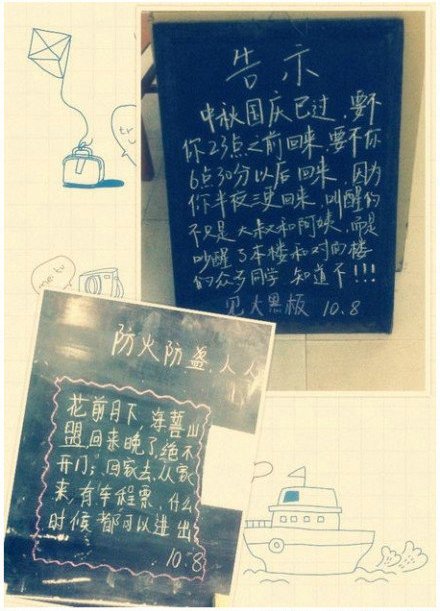 告示
中秋国庆已过,要不
你23点之前回来,要不你
6点30分以后回来,因为
你半夜三更回来,叫醒的
不只是大叔和阿姨,而是
吵醒了本楼和对面楼
的众多同学 知道不!!!
见大黑板 10.8
防火防盗 人人
花前月下,海誓山
盟,回来晚了,绝不
开门;回家去,从家
来,有车程票 什么
时候都可以进出
10.8